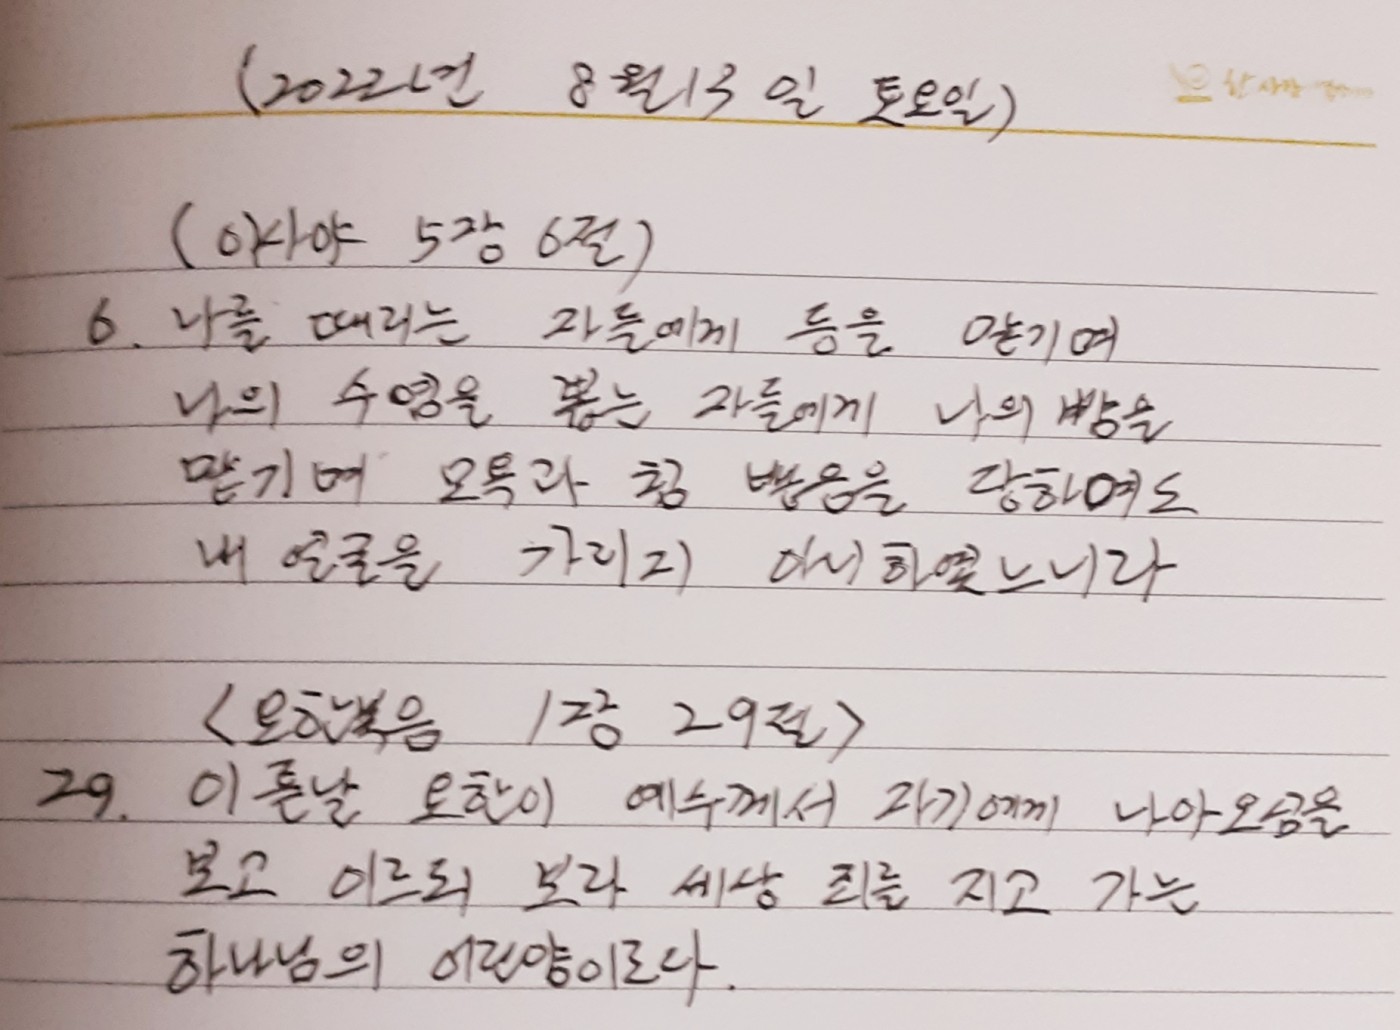 (2022년 8월 13일 토요일)
(이사야 5장 6절)
6. 나를 때리는 자들에게 등을 맏기며
나의 수염을 뽑는 자들에게 나의 뺨을
맏기며 모욕과 침 뱉음을 당하여도
내 얼굴을 가리지 아니하였느니라
<요한복음 1장 29절>
29. 이튿날 요한이 예수께서 자기에게 나아오심을
보고 이르되 보라 세상 죄를 지고 가는
하나님의 어린양이로다.